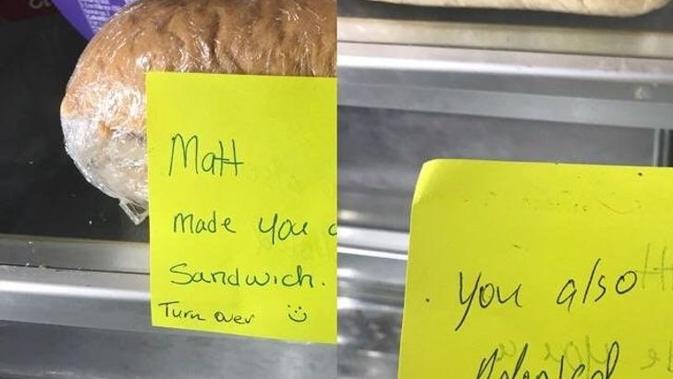 Matt
Made you a
Sandwich.
Turn over
You also